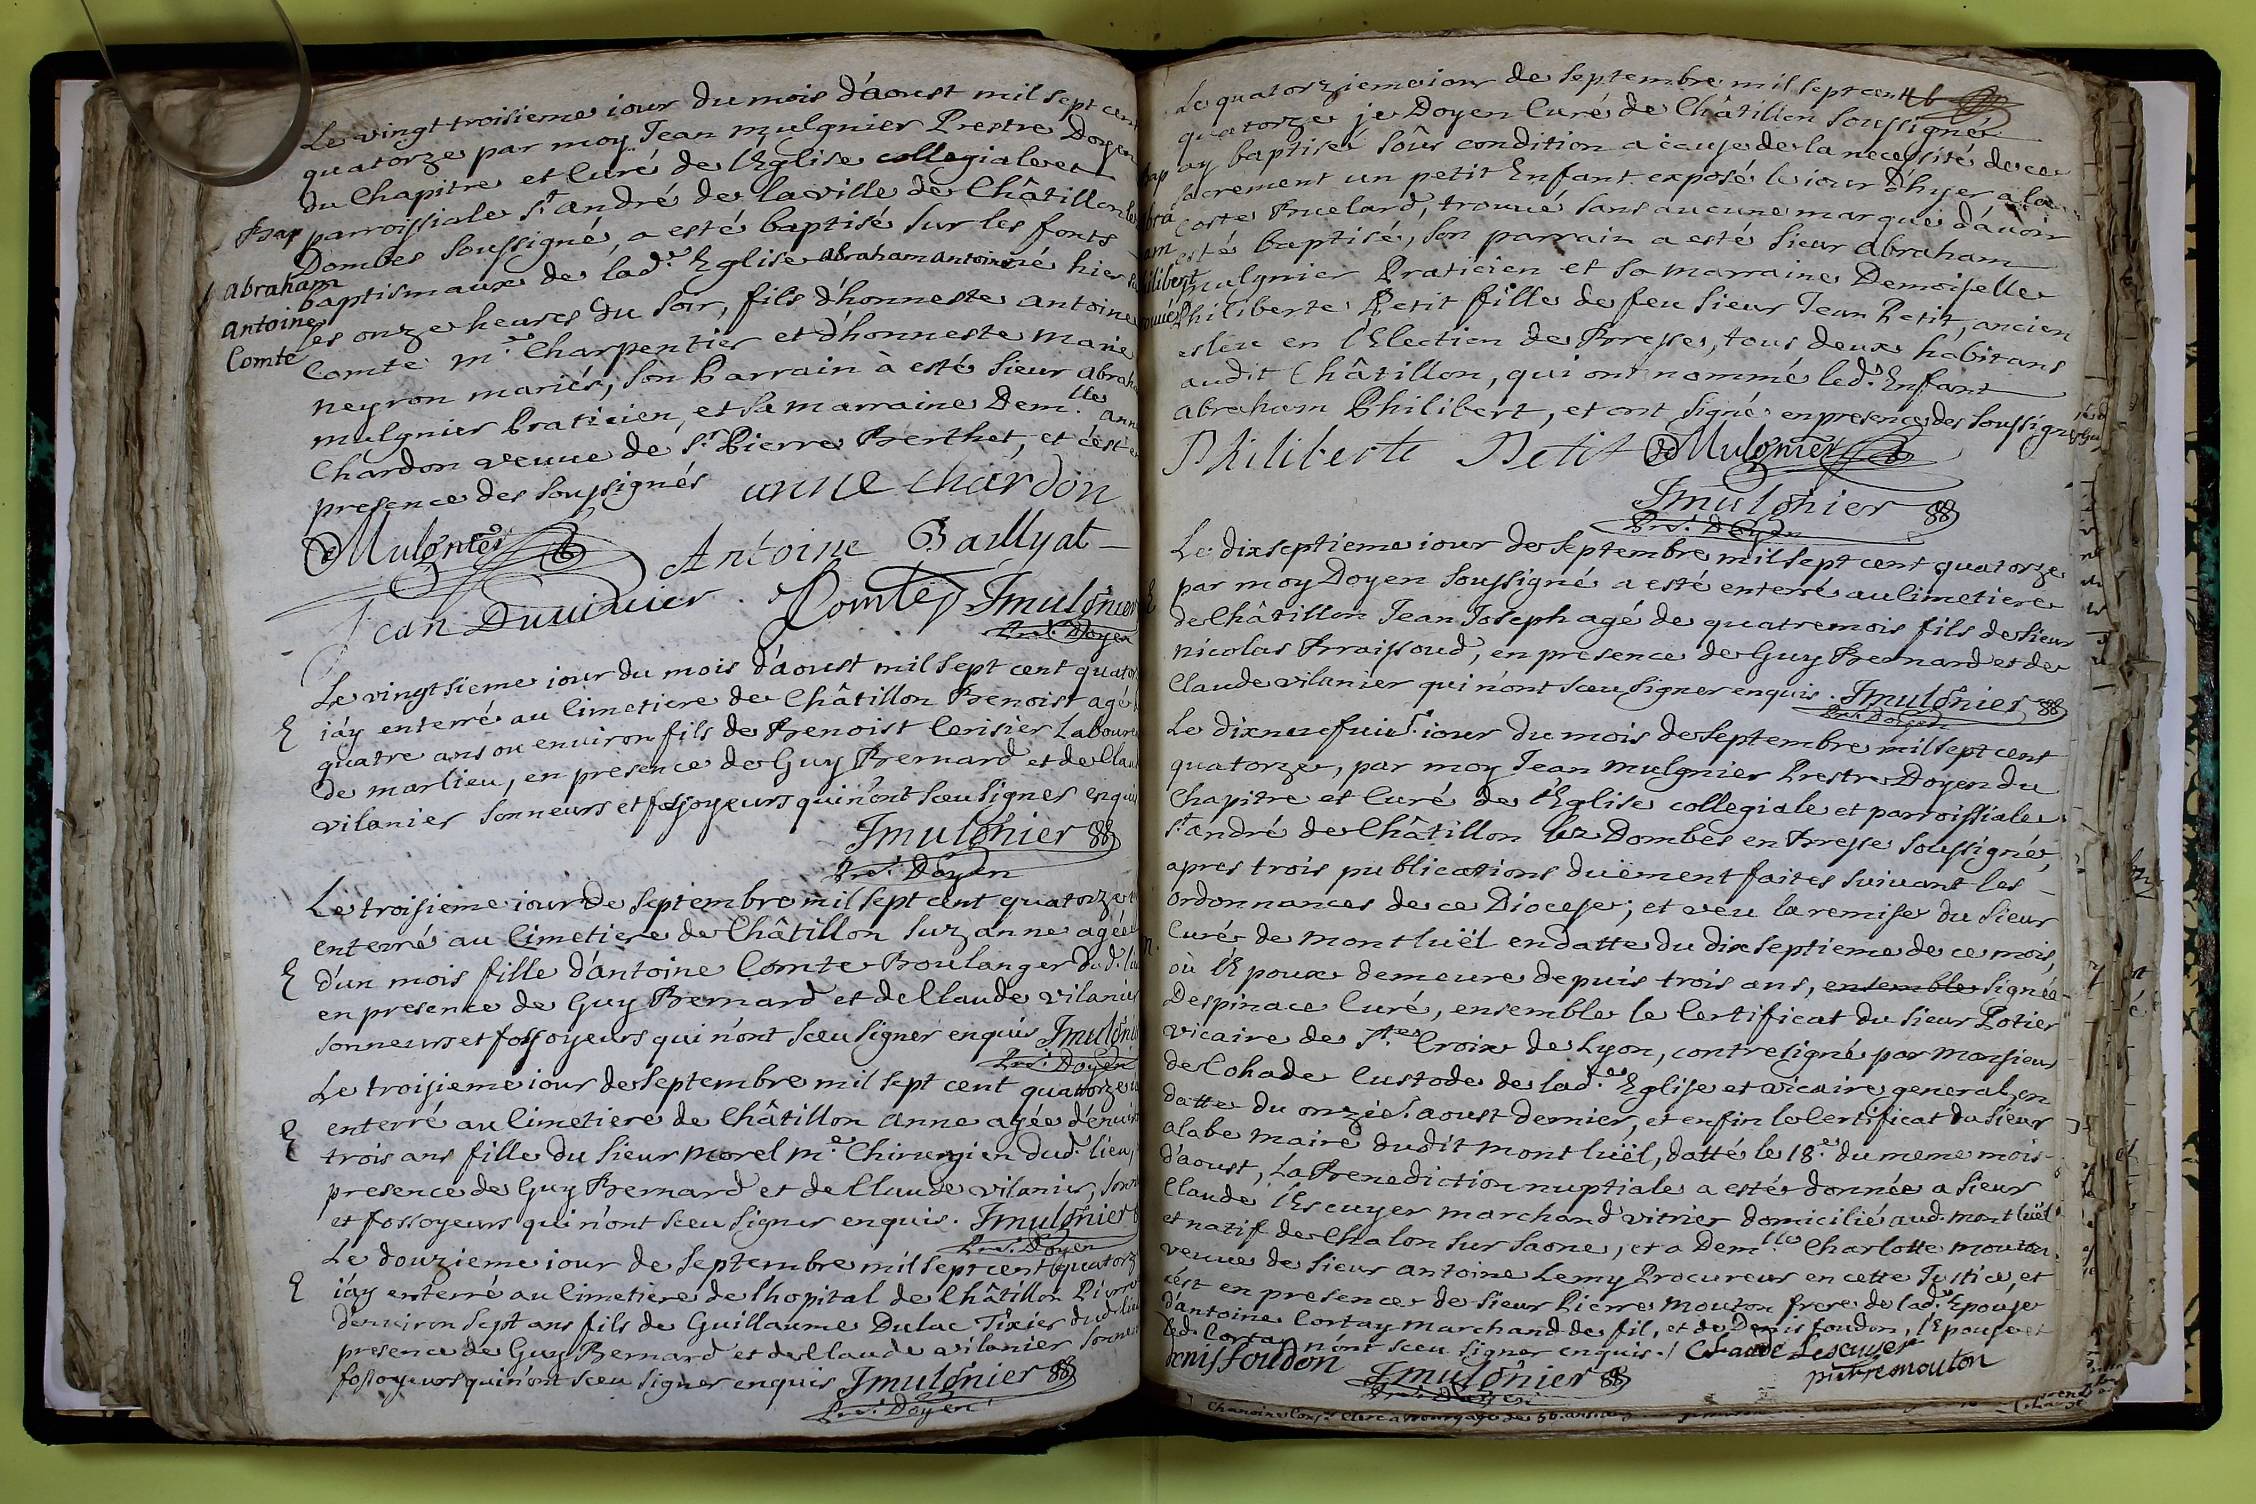 Le vingt troisieme iour du mois d'aoust mil sept cent
quatorze par moy Jean mulgnier Prestre Doyen
du Chapitre et Curé de l'Eglise collegiale et
Bap parroissiale St. andré de la ville de Châtillon les
Dombes soussigné, a esté baptisé sur les fonts
Abraham
Antoine
Comte
baptismaux de lad.e Eglise abraham antoine né hier
les onze heures du soir, fils d'honneste antoine
Comte m.e Charpentier et d'honneste marie
neyron mariés, son Parrain à esté sieur abraham
mulgnier Praticien, et sa marraine Dem.lle anne
Chardon veuue de Sr. Pierre Berthet, et c'est en
presence des soussignés anne chardon
Mulgnier Antoine Baillyat
Jean Duuiuier Comte Jmulgnier
Pre. Doyen
Le vingt sieme iour du mois d'aoust mil sept cent quator
E i'ay enterré au Cimetiere de Châtillon Benoist agé
quatre ans ou enuiron fils de Benoist Cerisier Laboure
de marlieu, en presence de Guy Bernard et de Clau
vilanier sonneurs et fossoyeurs qui n'ont sceu signer enquis
Jmulgnier
Pre. Doyen
Le troisieme iour de septembre mil sept cent quatorze
enterré au Cimetiere de Châtillon suzanne agée
E d'un mois fille d'antoine Comte Boulanger dud. lieu
en presence de Guy Bernard et de Claude vilanier
sonneurs et fossoyeurs qui n'ont sceu signer enquis Jmulgnier
Pre. Doyen
Le troisieme iour de septembre mil sept cent quatorze
enterré au Cimetiere de Châtillon anne agée d'enuiron
E trois ans fille du sieur morel m.e Chirurgien dud. lieu,
presence de Guy Bernard et de Claude vilanier, sonn
et fossoyeurs qui n'ont sceu signer enquis. Jmulgnier
Pre. Doyen
Le douzieme iour de septembre mil sept cent quatorz
E i'ay enterré au Cimetiere de l'hopital de Châtillon Pierre
d'enuiron sept ans fils de Guillaume Duluc Tixier dud. lieu
presence de Guy Bernard et de Claude vilanier sonneu
fossoyeurs qui n'ont sceu signer enquis Jmulgnier
Pre. Doyen
Le quatorzieme iour de septembre mil sept cent
quatorze je Doyen Curé de Châtillon soussigné
Bap ay baptisé soûs condition a cause de la necessité de ce
sacrement un petit Enfant exposé le iour d'hyer a la
Abra
am
hilibert
ouué
Coste Bruelard, trouué sans aucune marque d'auoir
esté baptisé, son parrain a esté sieur abraham
mulgnier Praticien et sa marraine Demoiselle
Philiberte Petit fille de feu sieur Jean Petit, ancien
esleu en l'Election de Bresse, tous deux habitans
audit Châtillon, qui ont nommé led. Enfant
abraham Philibert, et ont signé en presence des soussignés
Philiberte Petit Mulgnier
Jmulgnier
Pre. Doyen
Le dixseptieme iour de septembre mil sept cent quatorze
E par moy Doyen soussigné a esté enterré au Cimetiere
de Châtillon Jean Joseph agé de quatre mois fils de sieur
nicolas Fraissoud, en presence de Guy Bernard et de
Claude vilanier qui n'ont sceu signer enquis. Jmulgnier
Pre. Doyen
Le dixneufuie. iour du mois de septembre mil sept cent
quatorze, par moy Jean mulgnier Prestre Doyen du
Chapitre et Curé de l'Eglise collegiale et parroissiale
St. andré de Châtillon lez Dombes en Bresse soussigné,
apres trois publications duëment faites suivant les
ordonnances de ce Diocese, et veu la remise du sieur
Curé de montluël en datte du dix septieme de ce mois,
où l'Epoux demeure depuis trois ans, ensemble signée
Despinace Curé, ensemble le Certificat du sieur Potier
vicaire de Ste. Croix de Lyon, contresigné par monsieur
de Cohade Custode de lad.e Eglise et vicaire general, en
datte du onzie. aoust dernier, et enfin le Certificat du sieur
alabe maire dudit montluël, datté le 18.e du meme mois
d'aoust, La Benediction nuptiale a esté donnée a sieur
Claude l'Escuyer marchand vitrier domicilié aud. montluël
et natif de Chalon sur saone, et a Dem.lle Charlotte mouton
veuue de sieur antoine Lemy Procureur en cette Justice, et
c'est en presence de sieur Pierre mouton frere de lad.e Epouse
d'antoine Cortay marchand de fil, et de Denis foudon, l'Epouse et
led. Cortay n'ont sceu signer enquis. Claude Lescuyer
denis foudon Jmulgnier pierre mouton
Pre. Doyen